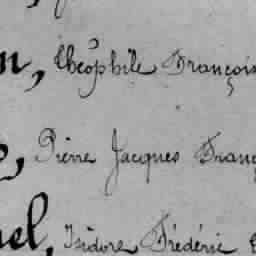 n, Théophile François
, Pierre Jacques Franç
el, Isidore Frédéric